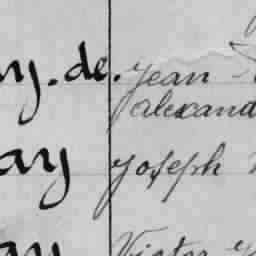 ny. de. Jean
alexand
ay Joseph
ay Victor